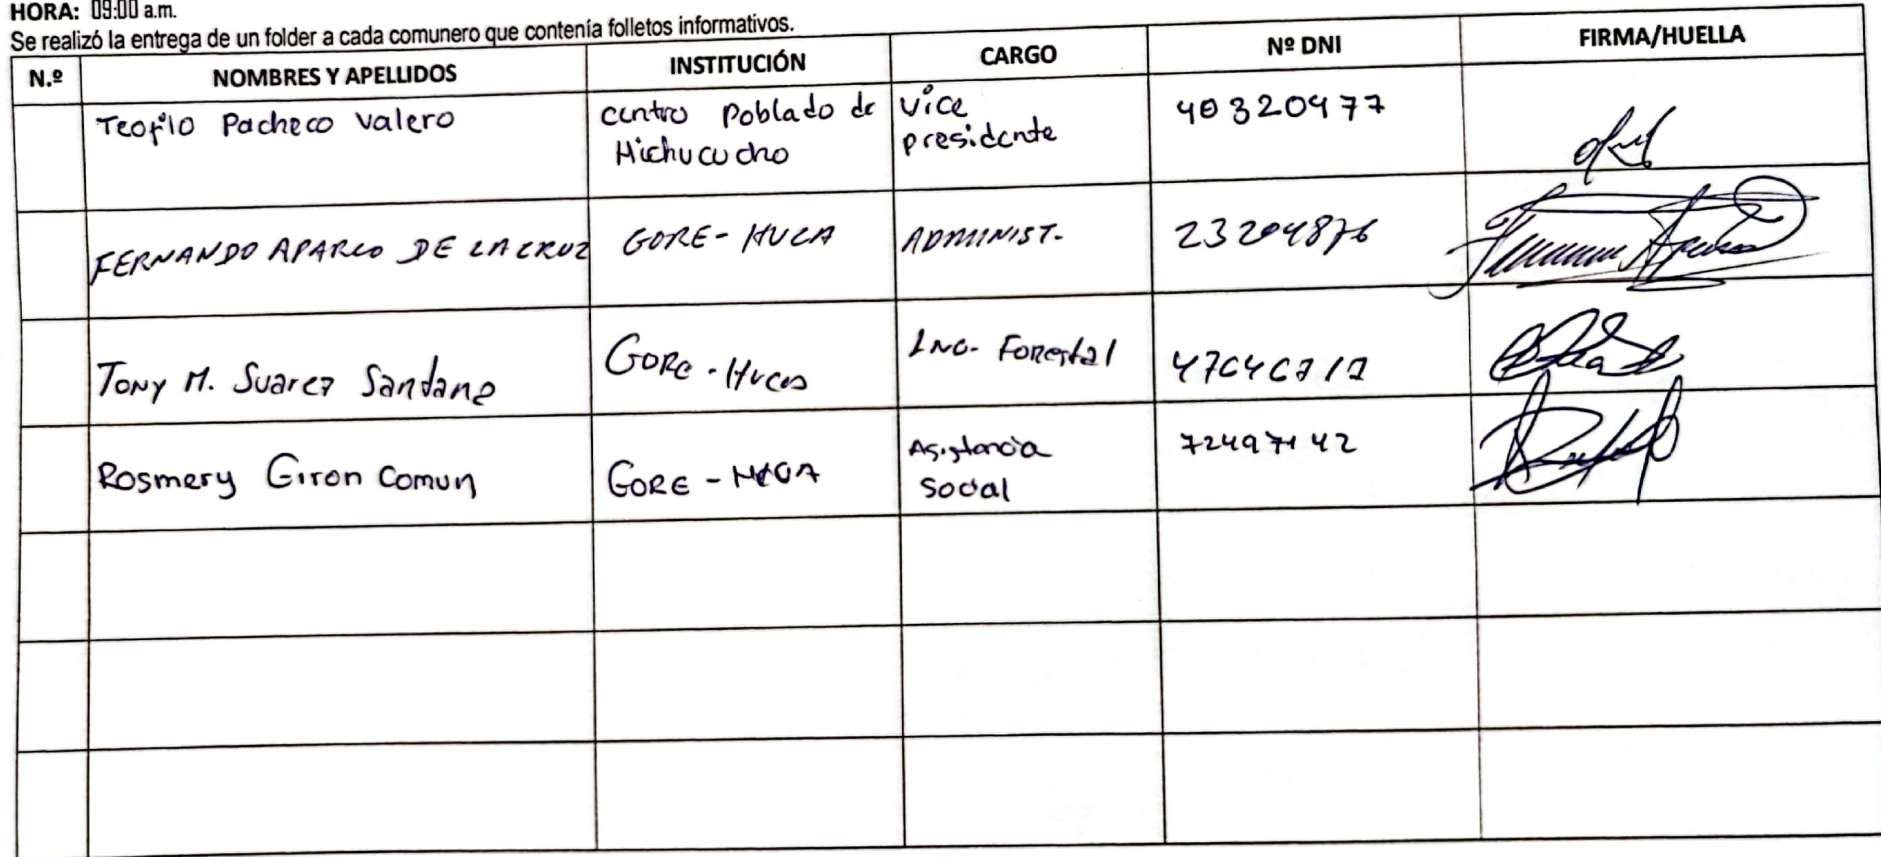 HORA: 09:00 a.m.
Se realizó la entrega de un folder a cada comunero que contenía folletos informativos.
N.º NOMBRES Y APELLIDOS INSTITUCIÓN CARGO Nº DNI FIRMA/HUELLA
Teofilo Pacheco Valero centro Poblado de Vice 40320477
Michucucho presidente
FERNANDO APARCO DE LA CRUZ GORE-HVCA ADMINIST. 23204876
Tony M. Suarez GORE-Hvca Ing. Forestal
Rosmery Giron Comun GORE-HVCA Asistencia 72497142
Social